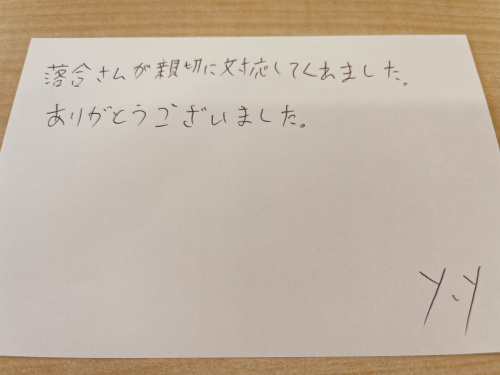 落合さんが親切に対応してくれました。
ありがとうございました。
Y、Y